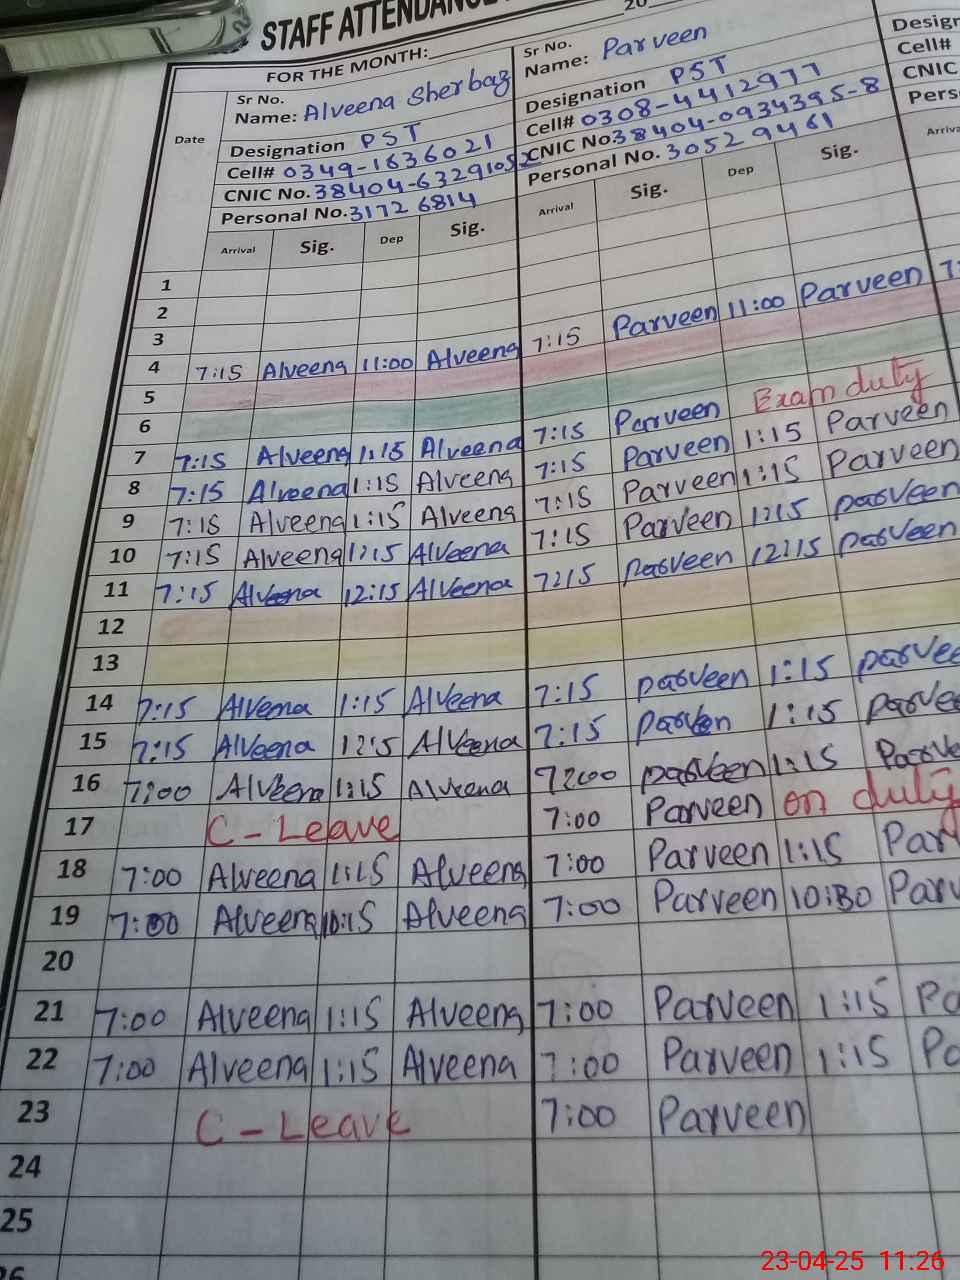 STAFF ATTENDANCE
20
FOR THE MONTH:
Date
Sr No.
Name: Alveena Sherbaz
Designation PST
Cell# 0349-1636021
CNIC No. 38404-6329105
Personal No. 31726814
Arrival Sig. Dep Sig.
Sr No.
Name: Parveen
Designation PST
Cell# 0308-4412977
CNIC No 38404-0934395-8
Personal No. 30529461
Arrival Sig. Dep Sig.
Cell#
CNIC
1
2
3
4 7:15 Alveena 11:00 Alveena 7:15 Parveen 11:00 Parveen
5
6
7 7:15 Alveena 1:15 Alveena 7:15 Parveen Exam duty
8 7:15 Alveena 1:15 Alveena 7:15 Parveen 1:15 Parveen
9 7:15 Alveena 1:15 Alveena 7:15 Parveen 1:15 Parveen
10 7:15 Alveena 1:15 Alveena 7:15 Parveen 1:15 Parveen
11 7:15 Alveena 12:15 Alveena 7:15 Parveen 12:15 Parveen
12
13
14 7:15 Alveena 1:15 Alveena 7:15 Parveen 1:15
15 7:15 Alveena Alveena 7:15 Parveen 1:15
16 7:00 Alveena 1:15 Alveena Parveen 1:15
17 C-Leave 7:00 Parveen on duty
18 7:00 Alveena 1:15 Alveena 7:00 Parveen 1:15
19 7:00 Alveena 10:15 Alveena 7:00 Parveen 10:30
20
21 7:00 Alveena 1:15 Alveena 7:00 Parveen 1:15
22 7:00 Alveena 1:15 Alveena 7:00 Parveen 1:15
23 C-Leave 7:00 Parveen
24
25
23-04-25 11:26